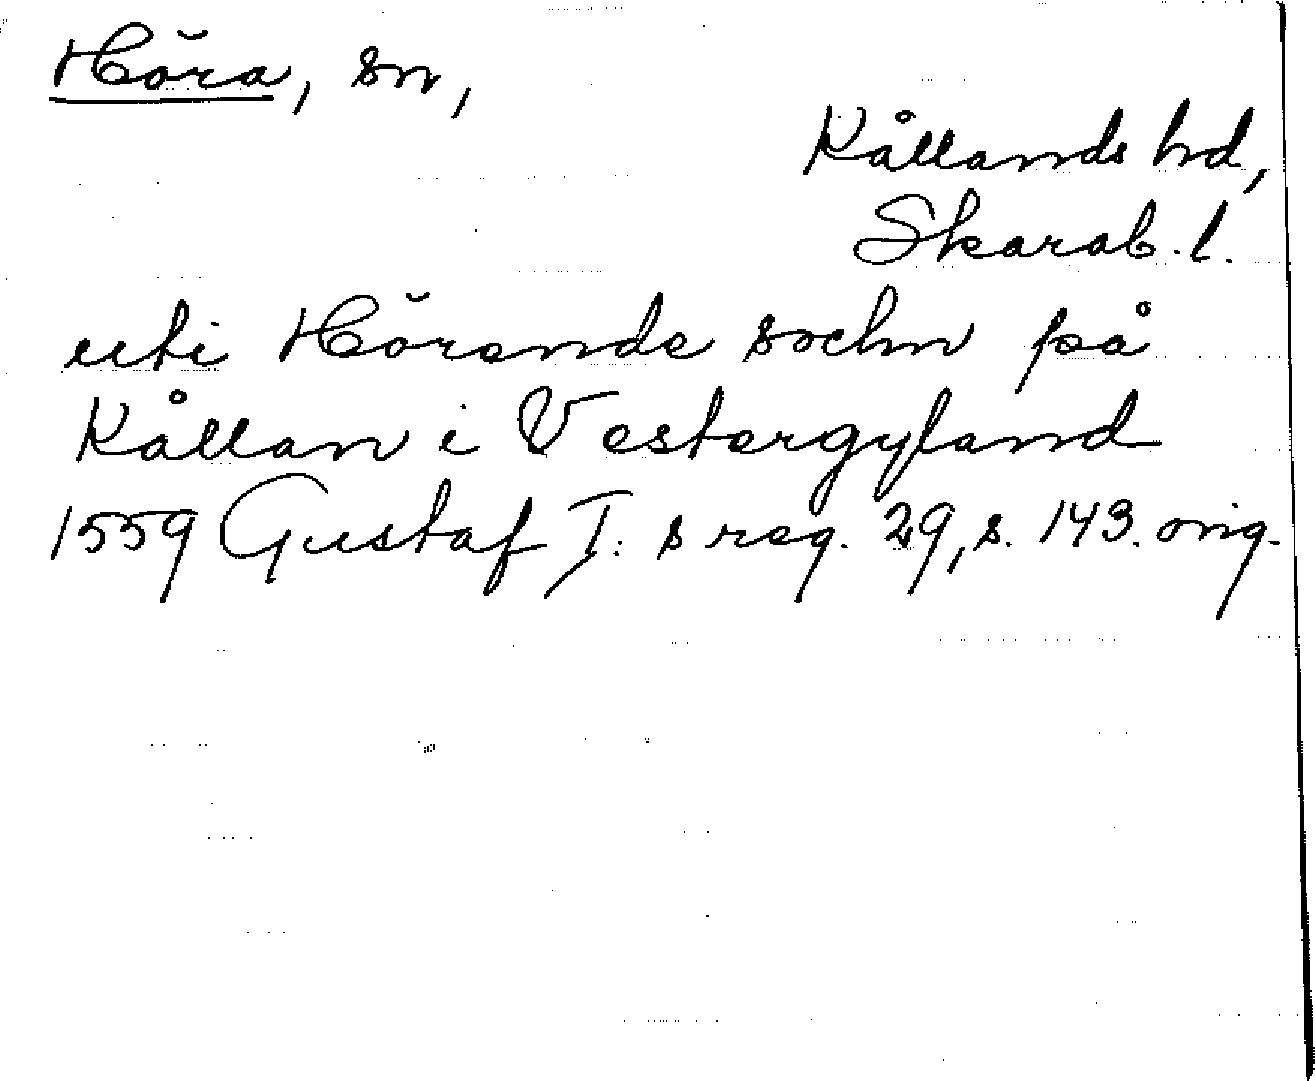 Höra, sn,
Kållands hd,
Skarab. l.
uti Hörende sochn på
Kållan i Vestergyland
1559 Gustaf I:s reg. 29, s. 143. orig.